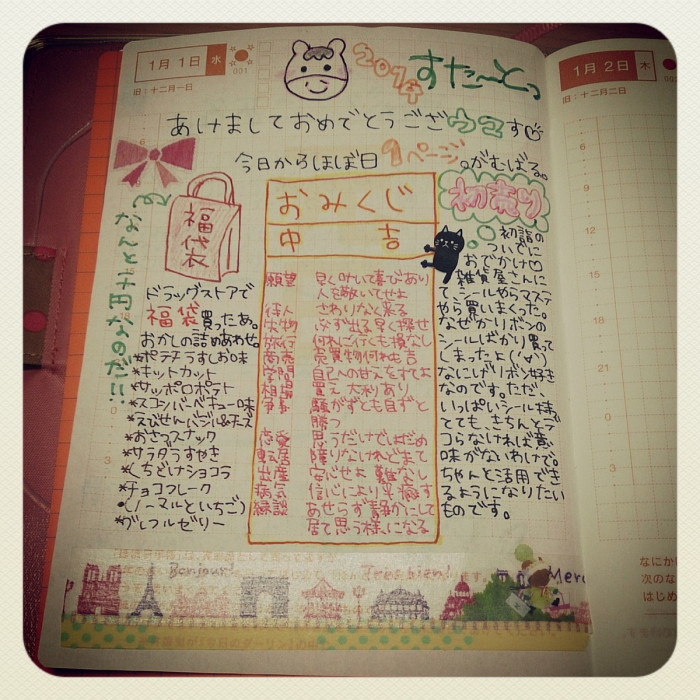 1月1日 水
001
旧：十二月一日
2014 すた〜とっ
1月2日 木
旧：十二月二日
あけましておめでとうござウマす
今日からほぼ日1ページ。がむばる。
福袋
おみくじ
中吉
初売り
ドラッグストアで
福袋買ったあ。
おかしの詰めあわせ。
*ポテチうすしお味
*キットカット
*サッポロポテト
*スコーンバーベキュー味
*えびせんバジル&チーズ
*おさつスナック
*サラダうすやき
*くちどけショコラ
*チョコフレーク
(ノーマルといちご)
願望 早く叶いて喜びあり
人を敬いてせよ
待人 さわりなく来る
失物 必ず出る早く探せ
旅行 何れに行くも損なし
商売 売買物何れも吉
学問 自己への甘えをすてよ
相場 買え 大利あり
争事 騒がずとも自ずと
勝つ
恋愛 思うだけではだめ
転居 障りなけれど まて
出産 安心せよ 難なし
病気 信心により平癒す
縁談 あせらず静かにして
居て思う様になる
初詣の
ついでに
おでかけ
雑貨屋さんに
てシールやらマステ
やら買いまくった。
なぜかリボンの
シールばかり買って
しまったよ
なにげリボン好き
なのです。ただ、
いっぱいシール持っ
てても、きちんとデ
コらなければ意
味がないわけで。
ちゃんと活用でき
るようになりたい
ものです。
Bonjour!
Tres bien!
Merc
なにか
次のな
はじめ